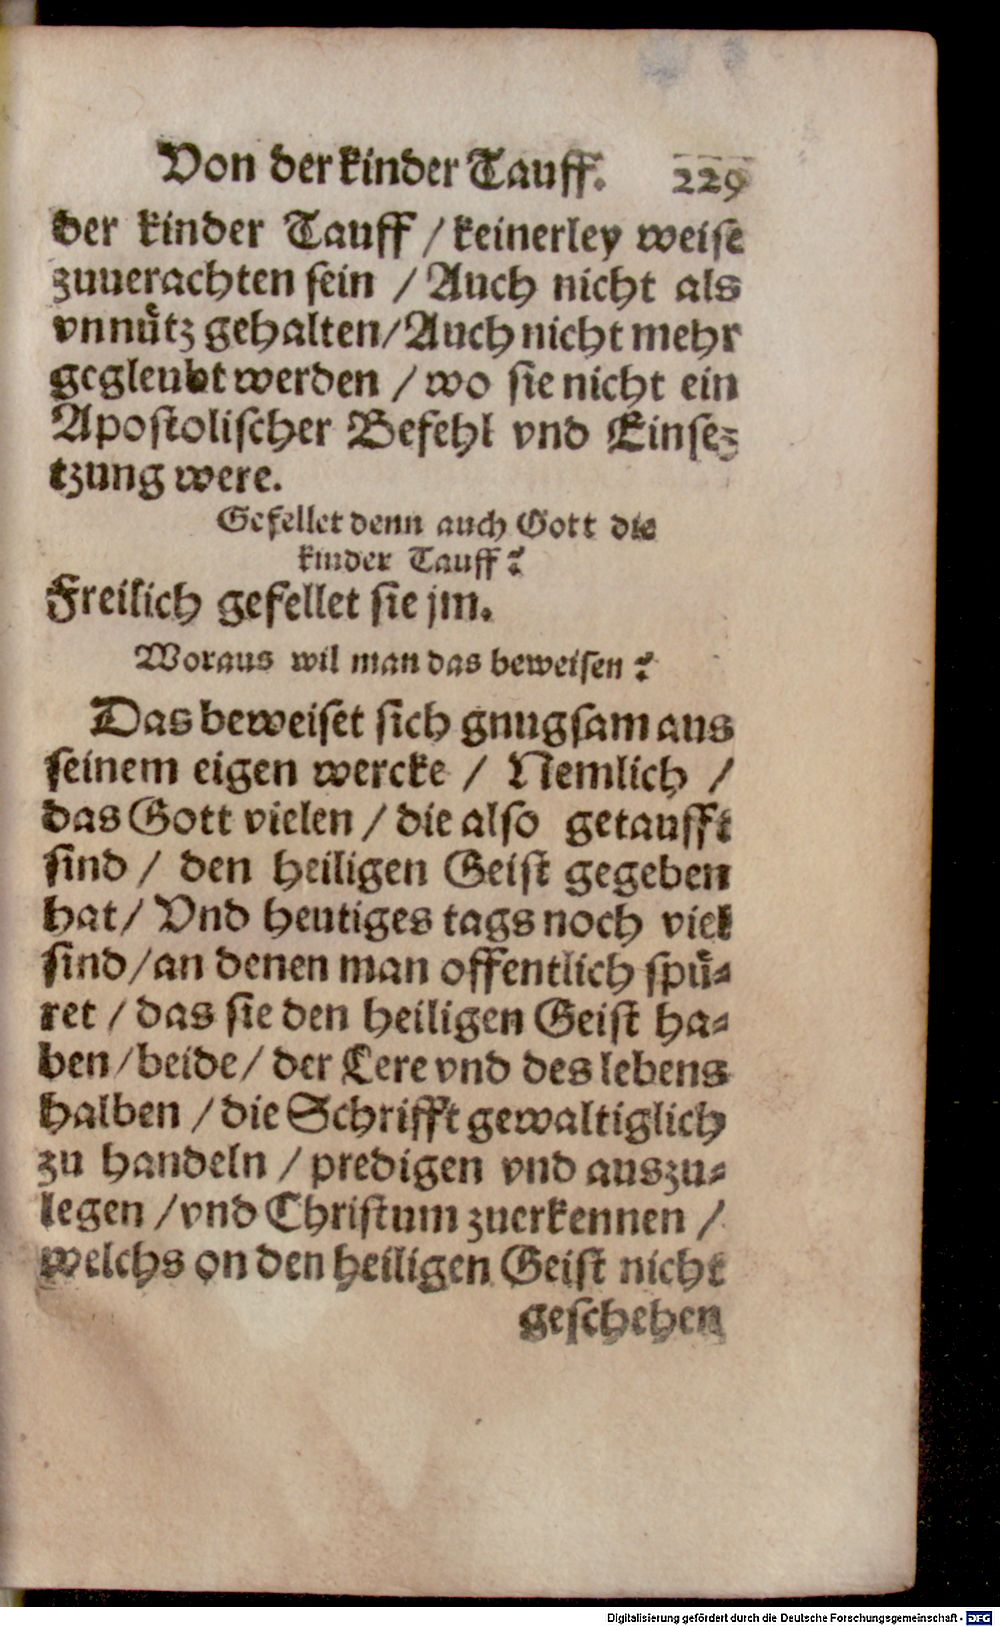 Von der kinder Tauff. 229
der kinder Tauff / keinerley weise
zuuerachten sein / Auch nicht als
vnnuͤtz gehalten / Auch nicht mehr
gegleubt werden / wo sie nicht ein
Apostolischer Befehl vnd Einse⸗
tzung were.
Gefellet denn auch Gott die
kinder Tauff?
Freilich gefellet sie jm.
Woraus wil man das beweisen?
Das beweiset sich gnugsam aus
seinem eigen wercke / Nemlich /
das Gott vielen / die also getaufft
sind / den heiligen Geist gegeben
hat / Vnd heutiges tags noch viel
sind / an denen man offentlich spuͤ⸗
ret / das sie den heiligen Geist ha⸗
ben / beide / der Lere vnd des lebens
halben / die Schrifft gewaltiglich
zu handeln / predigen vnd auszu⸗
legen / vnd Christum zuerkennen /
welchs on den heiligen Geist nicht
geschehen
Digitalisierung gefördert durch die Deutsche Forschungsgemeinschaft - DFG